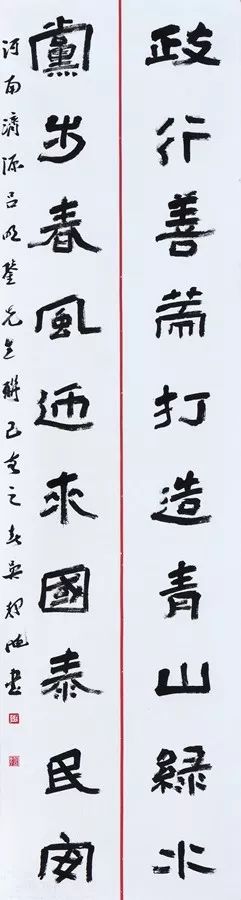 政行善策打造青山綠水
黨步春風迎來國泰民安
河南濟源吕先生聯己亥之春吳書